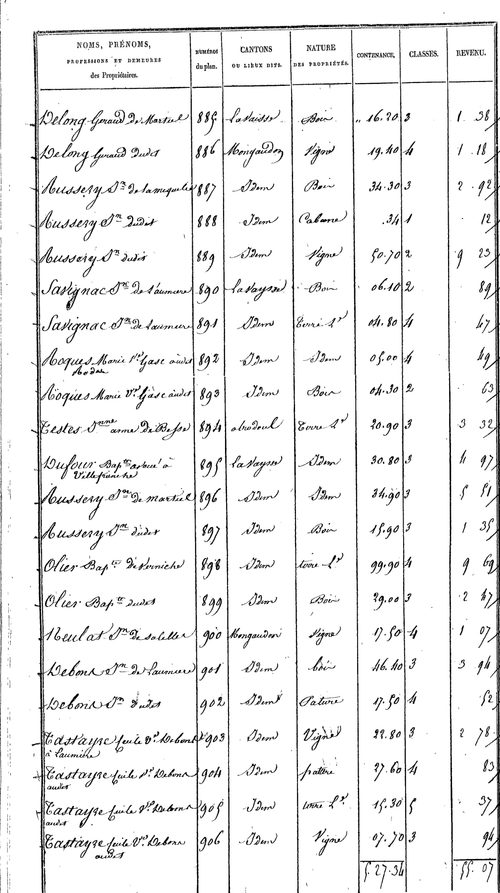 NOMS, PRÉNOMS, PROFESSIONS ET DEMEURES des Propriétaires. NUMÉROS du plan. CANTONS OU LIEUX DITS. NATURE DES PROPRIÉTÉS. CONTENANCE. CLASSES. REVENU.
Delong Geraud de Martiel 885 La Vaisse Bois " 16.20 3 1 38
Delong Geraud dudit 886 Mongaudon Vigne 19.40 4 1 18
Aussery Jn 887 Idem Bois 34.30 3 2 92
Aussery Jn dudit 888 Idem Cabane .34 1 12
Aussery Jn dudit 889 Idem Vigne 50.70 2 9 23
Savignac Jn de Laumiere 890 La Vaysse Bois 06.10 2 89
Savignac Jn de Laumiere 891 Idem Terre Lde 04.80 4 47
Roques Marie Ve Gasc audit 892 Idem Idem 05.00 4 49
Roques Marie Ve Gasc audit 893 Idem Bois 04.30 2 63
Testes 894 Terre Lde 20.90 3 3 32
Dufour Bapte avoué à Villefranche 895 La Vaysse Idem 30.80 3 4 97
Aussery Jn de Martiel 896 Idem Idem 34.90 3 5 51
Aussery Jn dudit 897 Idem Bois 15.90 3 1 35
Olier Bapte de Verniche 898 Idem terre Lde 99.90 4 9 69
Olier Bapte dudit 899 Idem Bois 29.00 3 2 47
Neulat Jn de 900 Mongaudon Vigne 17.50 4 1 07
Debons Jn de Laumiere 901 Idem bois 46.40 3 3 94
Debons Jn dudit 902 Idem Pature 17.50 4 52
Tastayre feuile Ve Debons à Laumiere 903 Idem Vigne 22.80 3 2 78
Tastayre feuile Ve Debons audit 904 Idem pature 27.60 4 83
Tastayre feuile Ve Debons audit 905 Idem terre Lde 15.30 5 37
Tastayre feuile Ve Debons audit 906 Idem Vigne 07.70 3 94
5.27.34 55.07